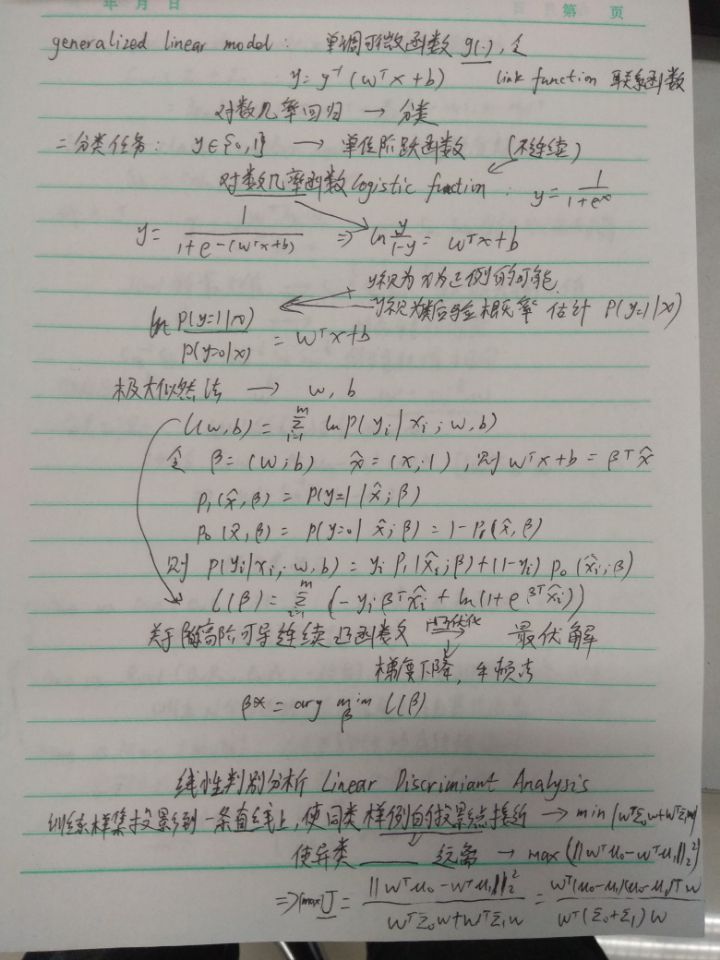 年 月 日 第 页
generalized linear model: 单调可微函数 g(·), 令
y = g⁻¹(wᵀx + b) link function 联系函数
对数几率回归 → 分类
二分类任务: y∈{0,1} → 单位阶跃函数 (不连续)
对数几率函数 logistic function: y = 1/(1+eˣ)
y = 1/(1+e^-(wᵀx+b)) ⇒ ln y/(1-y) = wᵀx+b
y视为 x为正例的可能
y视为类后验概率估计 p(y=1|x)
ln p(y=1|x)/p(y=0|x) = wᵀx+b
极大似然法 → w, b
l(w,b) = Σᵢ₌₁ᵐ ln p(yᵢ|xᵢ; w,b)
令 β = (w;b) x̂ = (x;1), 则 wᵀx+b = βᵀx̂
p₁(x̂,β) = p(y=1|x̂;β)
p₀(x̂,β) = p(y=0|x̂;β) = 1-p₁(x̂,β)
则 p(yᵢ|xᵢ; w,b) = yᵢ p₁(x̂ᵢ;β) + (1-yᵢ) p₀(x̂ᵢ;β)
l(β) = Σᵢ₌₁ᵐ (-yᵢβᵀx̂ᵢ + ln(1+e^βᵀx̂ᵢ))
关于 高阶可导连续凸函数 凸优化 → 最优解
梯度下降, 牛顿法
β* = arg min_β l(β)
线性判别分析 Linear Discrimiant Analysis
训练样集投影到一条直线上, 使同类样例的投影点接近 → min (wᵀΣ₀w+wᵀΣ₁w)
使异类 ____ 远离 → max (||wᵀμ₀-wᵀμ₁||₂²)
⇒ (max) J = ||wᵀμ₀-wᵀμ₁||₂²/(wᵀΣ₀w+wᵀΣ₁w) = wᵀ(μ₀-μ₁)(μ₀-μ₁)ᵀw/(wᵀ(Σ₀+Σ₁)w)